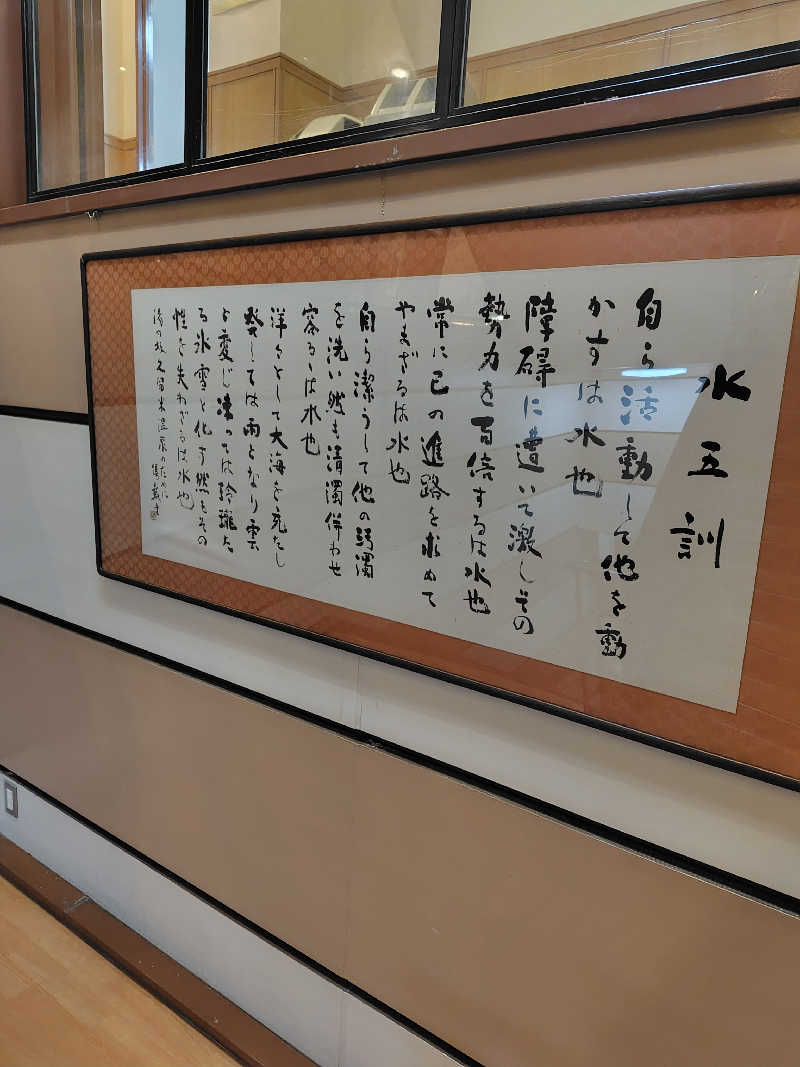 水五訓
自ら活動して他を動
かすは水也
障碍に遭いて激しその
勢力を百倍するは水也
常に己の進路を求めて
やまざるは水也
自ら潔うして他の汚濁
を洗い然も清濁併わせ
容るゝは水也
洋々として大海を充たし
発しては雨となり雲
と変じ凍っては玲瓏た
る氷雪と化す然もその
性を失わざるは水也
湯の杜久留米温泉のために